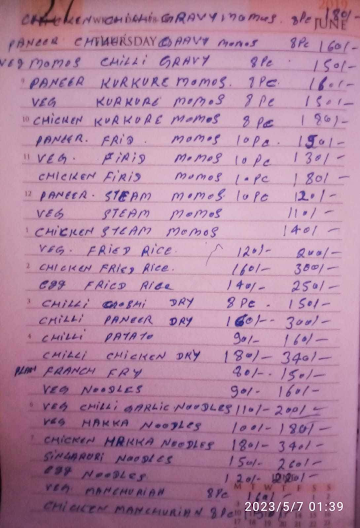 CHICKEN CHILLI GRAVY MOMOS. 8PC 180/-
JUNE
THURSDAY
PANEER CHILLI GRAVY MOMOS 8PC 160/-
VEG MOMOS CHILLI GRAVY 8PC. 150/-
9 PANEER KURKURE MOMOS. 8PC. 160/-
VEG KURKURE MOMOS 8PC 150/-
10 CHICKEN KURKURE MOMOS 8PC 180/-
PANEER. FRID. MOMOS 10PC. 150/-
11 VEG. FIRID MOMOS 10PC 130/-
CHICKEN FIRID MOMOS 10PC 180/-
12 PANEER. STEAM MOMOS 10PC 120/-
VEG STEAM MOMOS 110/-
1 CHICKEN STEAM MOMOS 140/-
VEG. FRIED RICE. 120/- 200/-
2 CHICKEN FRIED RICE. 160/- 300/-
EGG FRIED RICE 140/- 250/-
3 CHILLI DRY 8PC. 150/-
CHILLI PANEER DRY 160/- 300/-
4 CHILLI PATATO 90/- 160/-
CHILLI CHICKEN DRY 180/- 340/-
FRANCH FRY 80/- 150/-
VEG NOODLES 90/- 160/-
VEG CHILLI GARLIC NOODLES 110/- 200/-
VEG HAKKA NOODLES 100/- 180/-
CHICKEN HAKKA NOODLES 180/- 340/-
SINGAPURI NOODLES 150/- 260/-
EGG NOODLES 120/-
VEG MANCHURIAN 8PC 160/-
CHICKEN MANCHURIAN 8PC
2023/5/7 01:39